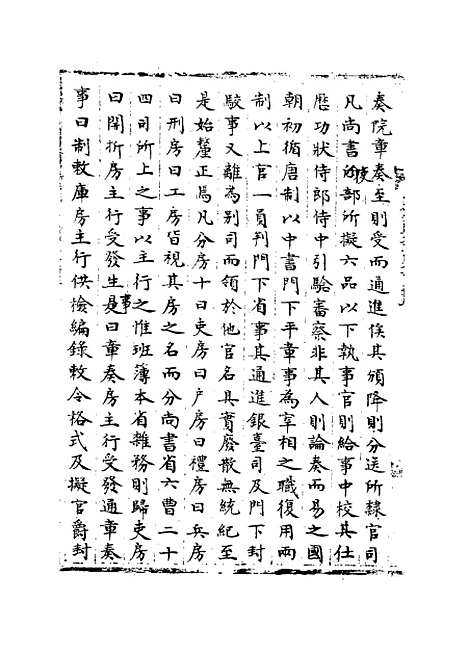 奏院章奏至則受而通進俟其頒降則分送所隸官司
凡尚書省吏部所擬六品以下執事官則給事中校其仕
歷功狀侍郎侍中引驗審察非其人則論奏而易之國
朝初循唐制以中書門下平章事為宰相之職復用兩
制以上官一員判門下省事其通進銀臺司及門下封
駮事又離為別司而領於他官名具實廢散無統紀至
是始釐正焉凡分房十曰吏房曰户房曰禮房曰兵房
曰刑房曰工房皆視其房之名而分尚書省六曹二十
四司所上之事以主行之惟班簿本省雜務則歸吏房
曰開拆房主行受發生事是曰章奏房主行受發通章奏
事曰制敕庫房主行供撿編錄敕令格式及擬官爵封